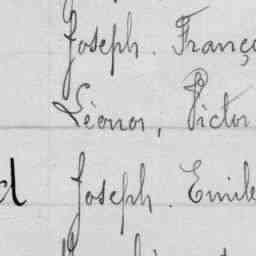 Joseph. Franço
Léonor, Victor
d Joseph. Emile